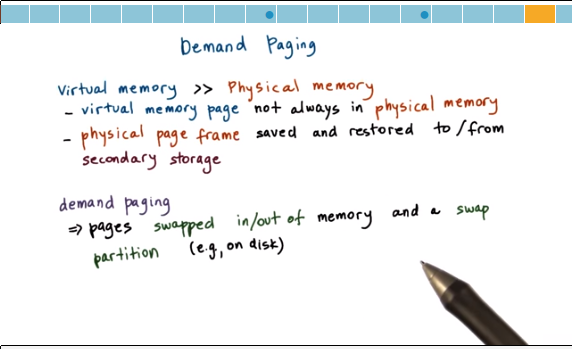 Demand Paging
Virtual memory >> Physical memory
- virtual memory page not always in physical memory
- physical page frame saved and restored to/from
secondary storage
demand paging
⇒ pages swapped in/out of memory and a swap
partition (e.g, on disk)